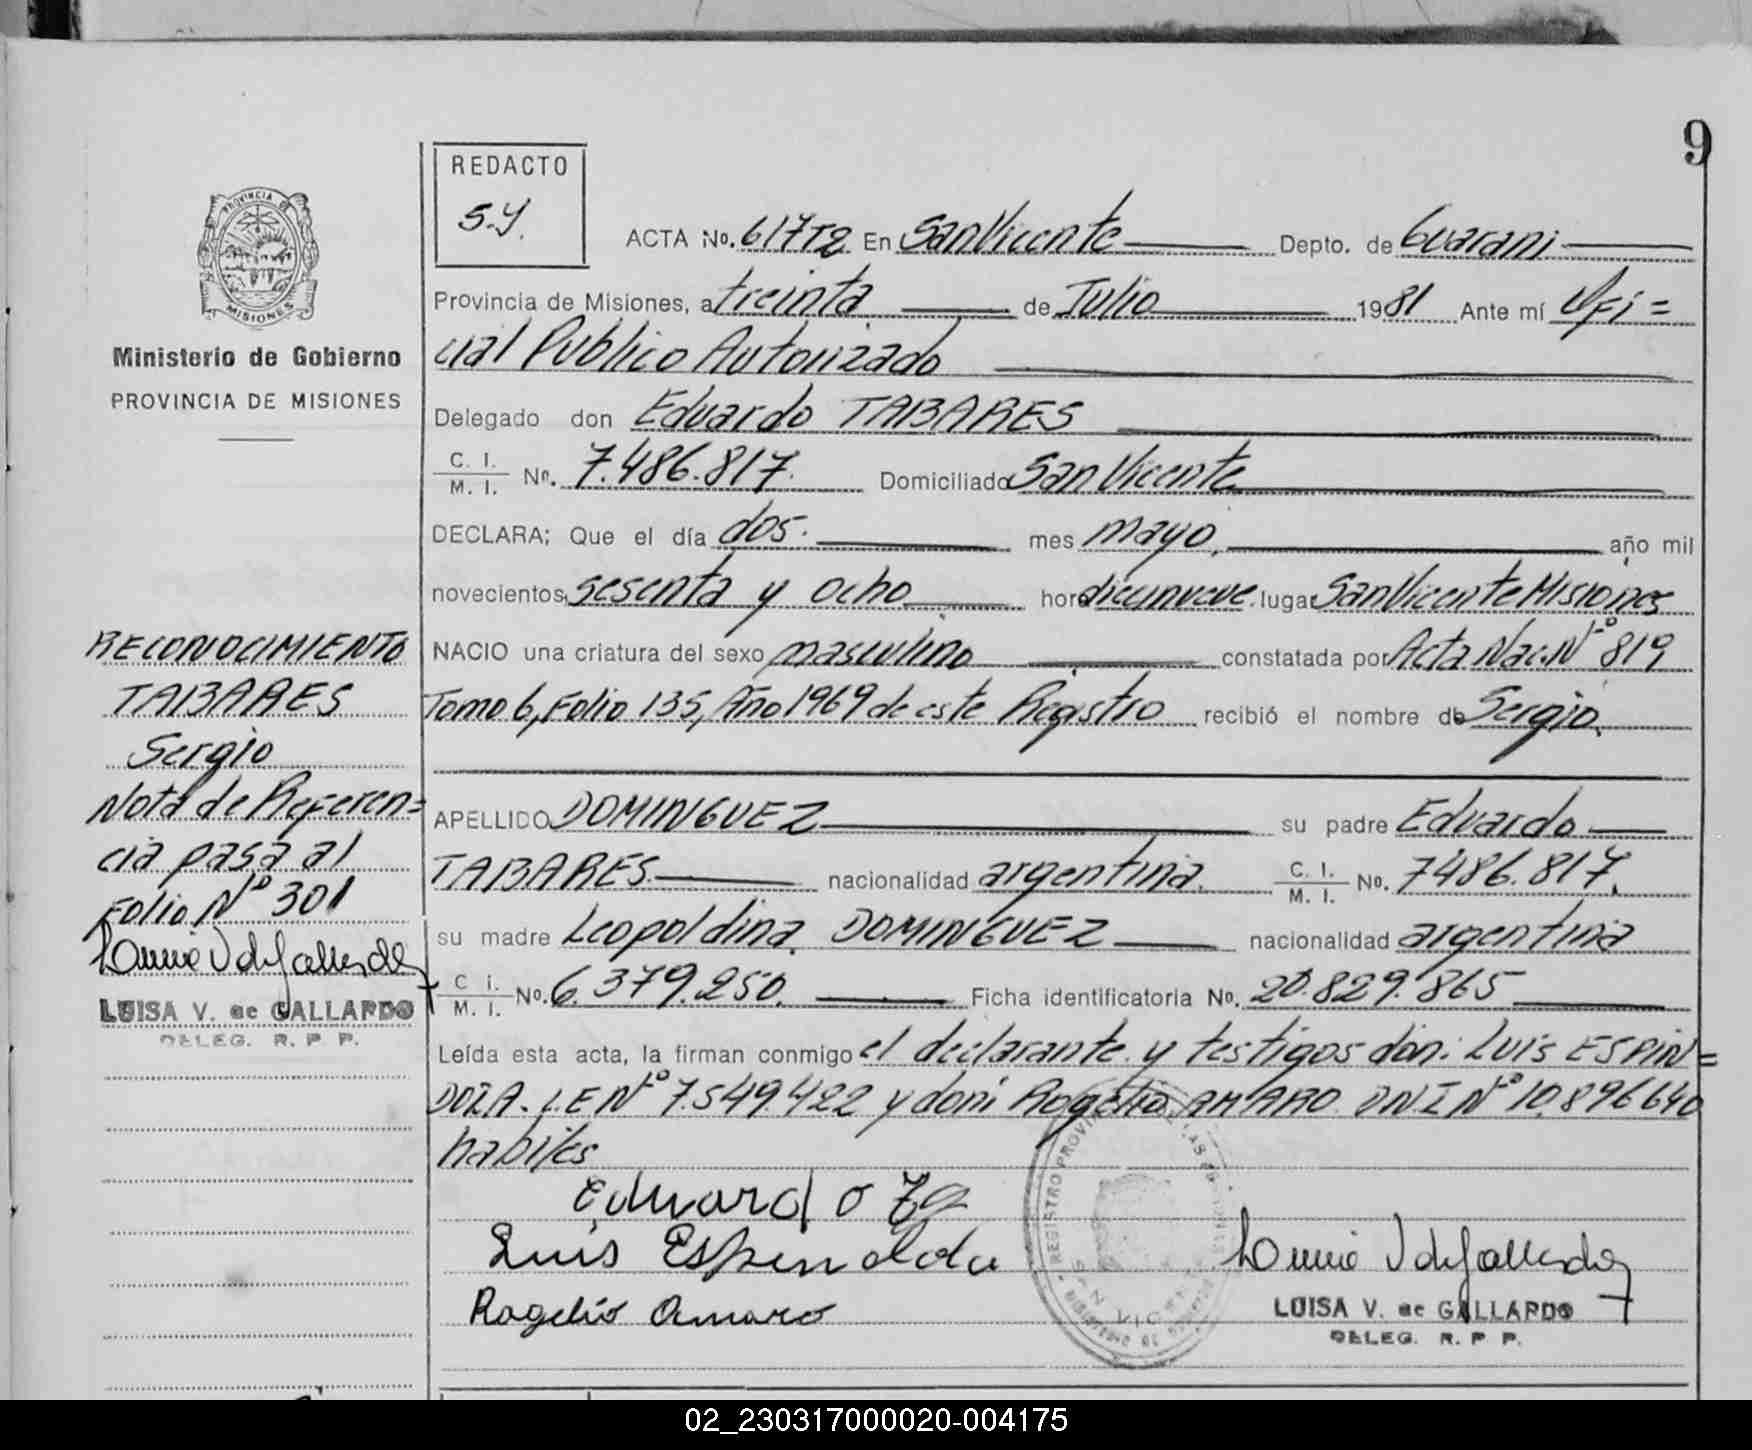 9
REDACTO
S.Y.
PROVINCIA DE
MISIONES
Ministerio de Gobierno
PROVINCIA DE MISIONES
ACTA No. 617T2 En San Vicente Depto. de Guarani
Provincia de Misiones, a treinta de Julio 1981 Ante mí Ofi=
cial Publico Autorizado
Delegado don Eduardo TABARES
C. I. / M. I. No. 7.486.817. Domiciliado San Vicente
DECLARA; Que el día dos. mes mayo, año mil
novecientos sesenta y ocho hora diecinueve lugar San Vicente Misiones
NACIO una criatura del sexo masculino constatada por Acta Nac. Nº 819
Tomo 6, Folio 135, Año 1969 de este Registro recibió el nombre de Sergio.
APELLIDO DOMINGUEZ su padre Eduardo
TABARES nacionalidad argentina. C. I. / M. I. No. 7486.817.
su madre Leopoldina DOMINGUEZ nacionalidad argentina
C I. / M. I. No. 6.379.250. Ficha identificatoria No. 20.829.865
Leída esta acta, la firman conmigo el declarante y testigos don: Luis ESPIN=
DOLA. L.E Nº 7.549.422 y don: Rogelio AMARO. DNI Nº 10.896640
habiles
Eduardo
Luis Espindola
Rogelio Amaro
REGISTRO PROVIN
SAN VICENTE
LUISA V. de GALLARDO
DELEG. R. P P.
RECONOCIMIENTO
TABARES
Sergio
Nota de Referen=
cia pasa al
Folio Nº 301
LUISA V. de GALLARDO
DELEG. R. P P.
02_230317000020-004175